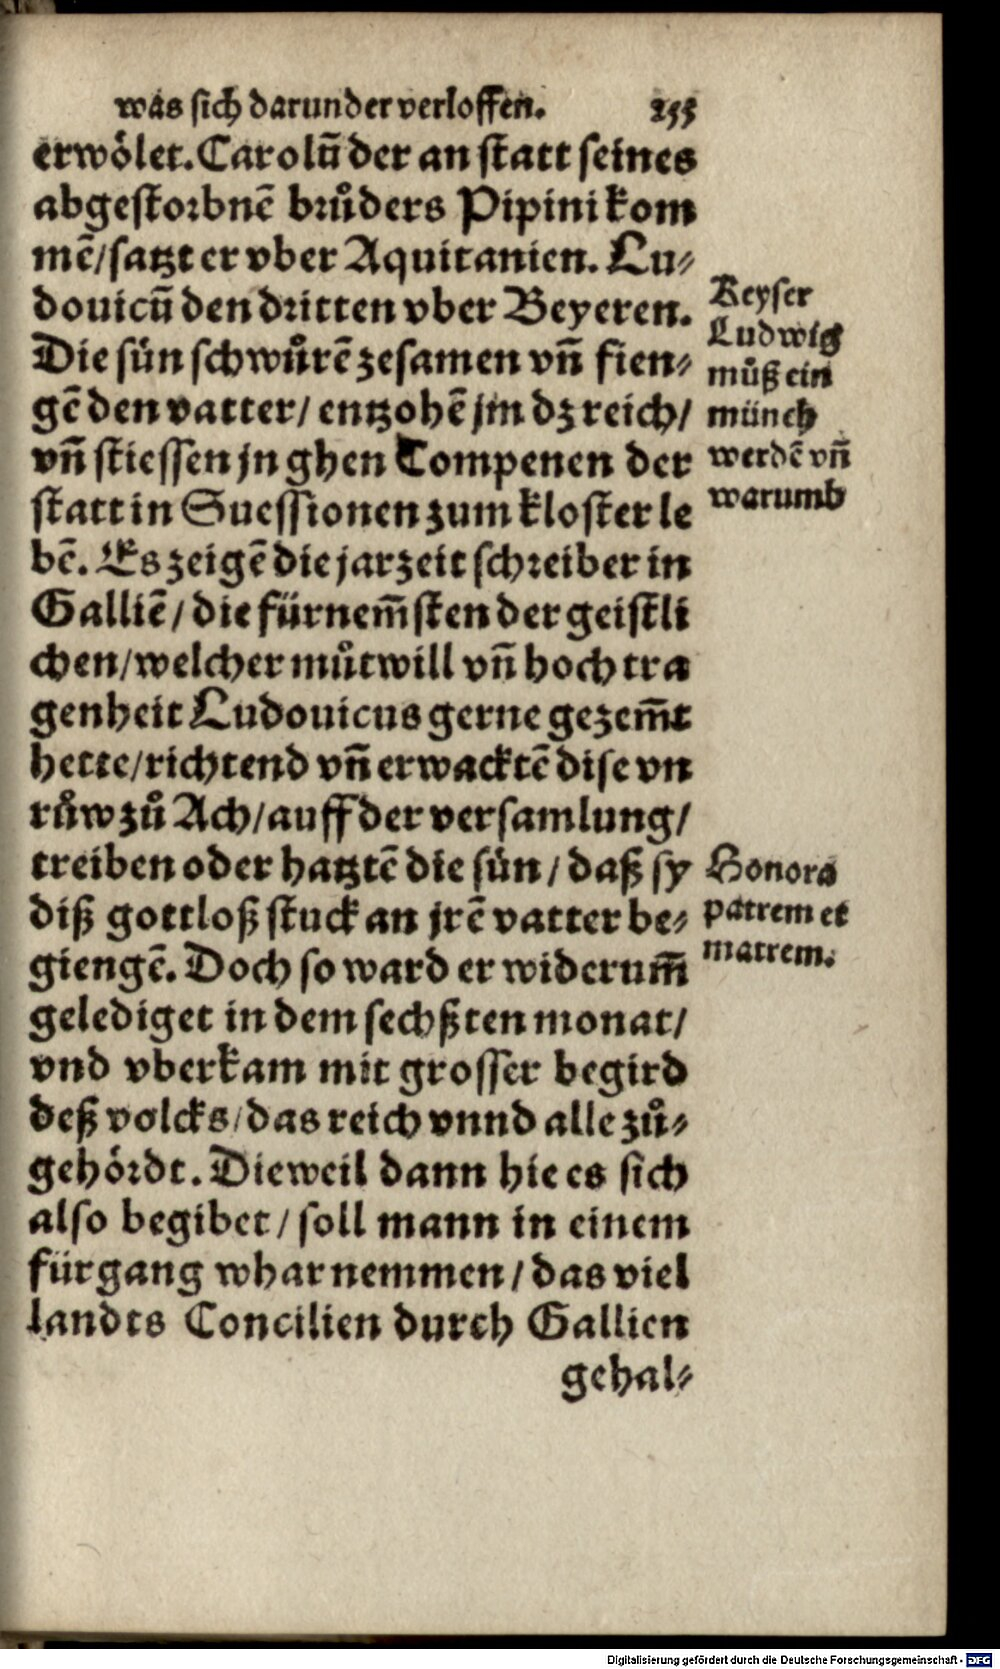 was sich darunder verloffen. 255
erwoͤlet. Carolũ der an statt seines
abgestorbnẽ bruͦders Pipini kom
mẽ/satzt er vber Aquitanien. Lu⸗
douicũ den dritten vber Beyeren.
Die sün schwuͦrẽ zesamen vñ fien⸗
gẽ den vatter/ entzohẽ jm dz reich/
vñ stiessen jn ghen Compenen der
statt in Suessionen zum kloster le
bẽ. Es zeigẽ die jarzeit schreiber in
Galliẽ/ die fürnem̃sten der geistli
chen/welcher muͦtwill vñ hoch tra
genheit Ludouicus gerne gezem̃t
hette/richtend vñ erwacktẽ dise vn
ruͦw zuͦ Ach/auff der versamlung/
treiben oder hatztẽ die sün/ daß sy
diß gottloß stuck an jrẽ vatter be⸗
giengẽ. Doch so ward er widerum̃
gelediget in dem sechßten monat/
vnd vberkam mit grosser begird
deß volcks/das reich vnnd alle zuͦ⸗
gehoͤrdt. Dieweil dann hie es sich
also begibet/ soll mann in einem
fürgang wharnemmen/ das viel
landts Concilien durch Gallien
gehal⸗
Keyser
Ludwig
muͦß ein
münch
werdẽ vñ
warumb
Honora
patrem et
matrem.
Digitalisierung gefördert durch die Deutsche Forschungsgemeinschaft - DFG